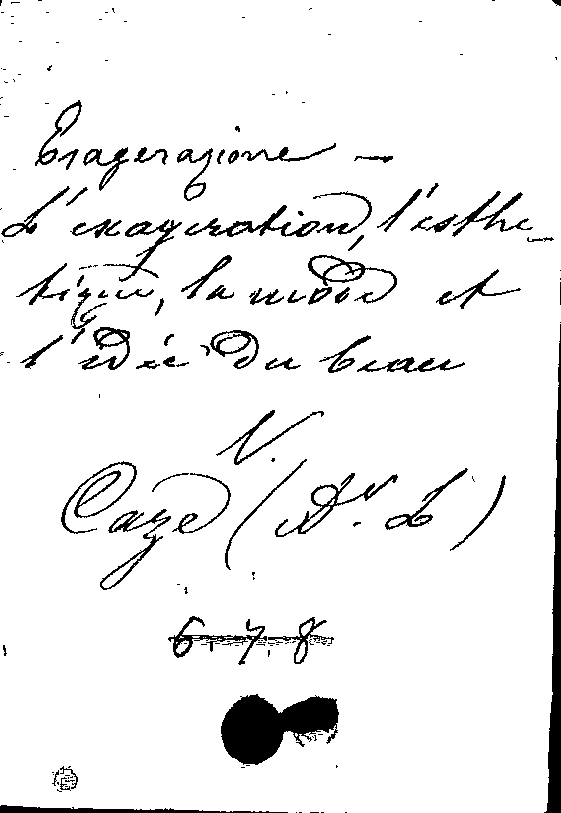 Esagerazione —
L'exagération, l'esthé-
tique, la mode et
l'idée du beau
V.
Caze (Dr. L)
6. 7. 8